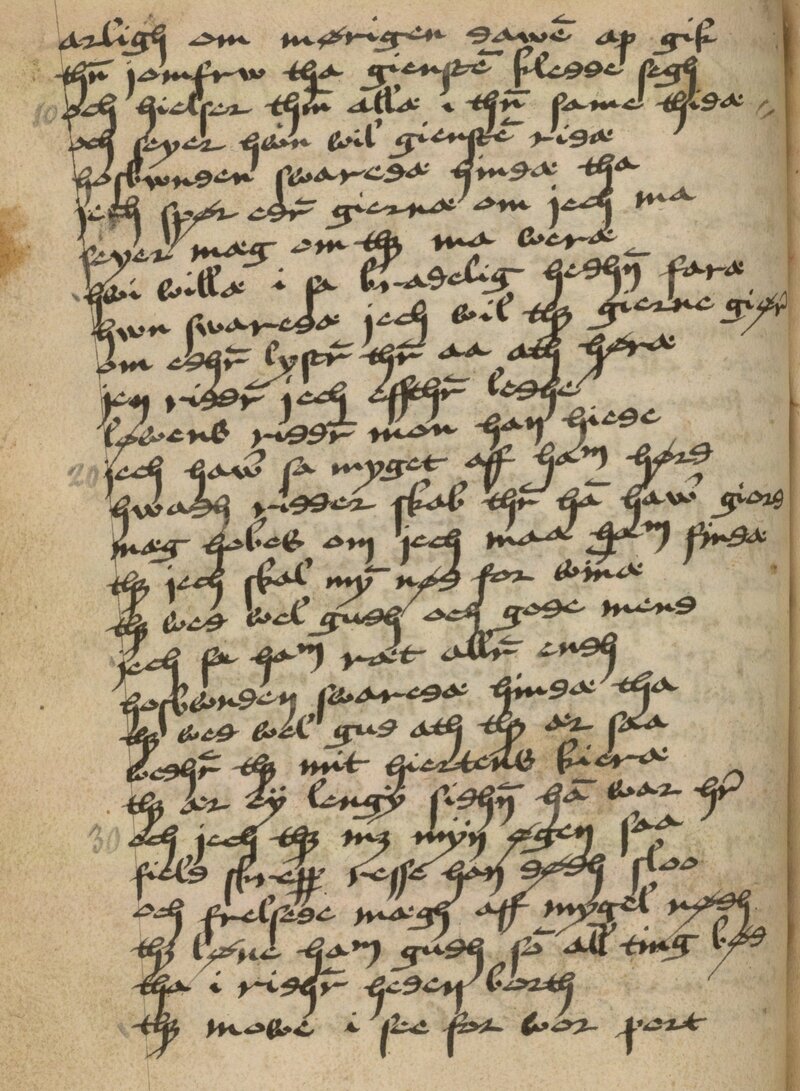 arligh om mørigen dawē ap gik
thn̄ jomfrw tha gienstē kledde segh
10 och hielser thm̄ allæ i thn̄ same thidæ
och seyer hwn wil gienstē ridæ
hosbwnden swaredæ hindæ tha
jech spør edr̄ giernæ om jech ma
seyer mæg om thꝫ ma weræ
hwi willæ i sa bradelig hedhn̄ faræ
hwn swaredæ jech wil thꝫ gierne giør̄
om edhr̄ lystr̄ thr̄ aa ath høræ
jen riddr̄ jech effthr̄ ledhe
løwens riddr̄ mon han hiede
20 jech haw̄ sa myget aff ham hørd
hwadh ridder skab thr̄ hā haw̄ giord
mæg hobes om jech maa ham findæ
thꝫ jech skal mȳ nød for win̄æ
thꝫ wed wel gudh och gode mend
jech sa ham ræt allr̄ endh
hosbwnden swaredæ hindæ tha
thꝫ wed wel gud ath thꝫ ær saa
wedhr̄ thꝫ mit hiertens kieræ
thꝫ ær ey lengy sidhn̄ hā war hr̄
30 och jech thꝫ mꝫ myn øgen saa
field resse han dødh sloo
och frelsede mægh aff mygel nødh
thꝫ løne ham gudh sō all ting bød
tha i ridhr̄ heden borth
thꝫ mowe i see for wor port